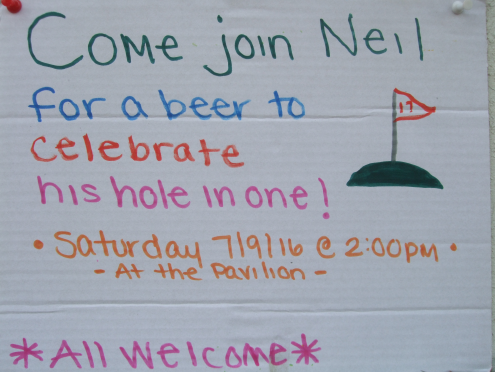 Come join Neil
for a beer to
celebrate
his hole in one!
17
• Saturday 7/9/16 @ 2:00PM •
- At the Pavilion -
*All Welcome*